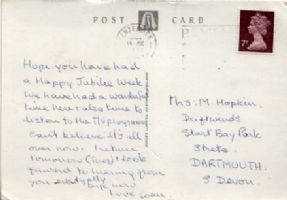 POST CARD
7P
Hope you have had
a Happy Jubilee Week
We have had a
time here & also time to
listen to the T/V programs
can't believe it's all
over now. I return
tomorrow (Tues) & look
forward to hearing from
you eventually
Bye now
Love
Mrs. M. Hopkin.
Driftwoods
Start Bay Park
Strete
DARTMOUTH
S Devon.